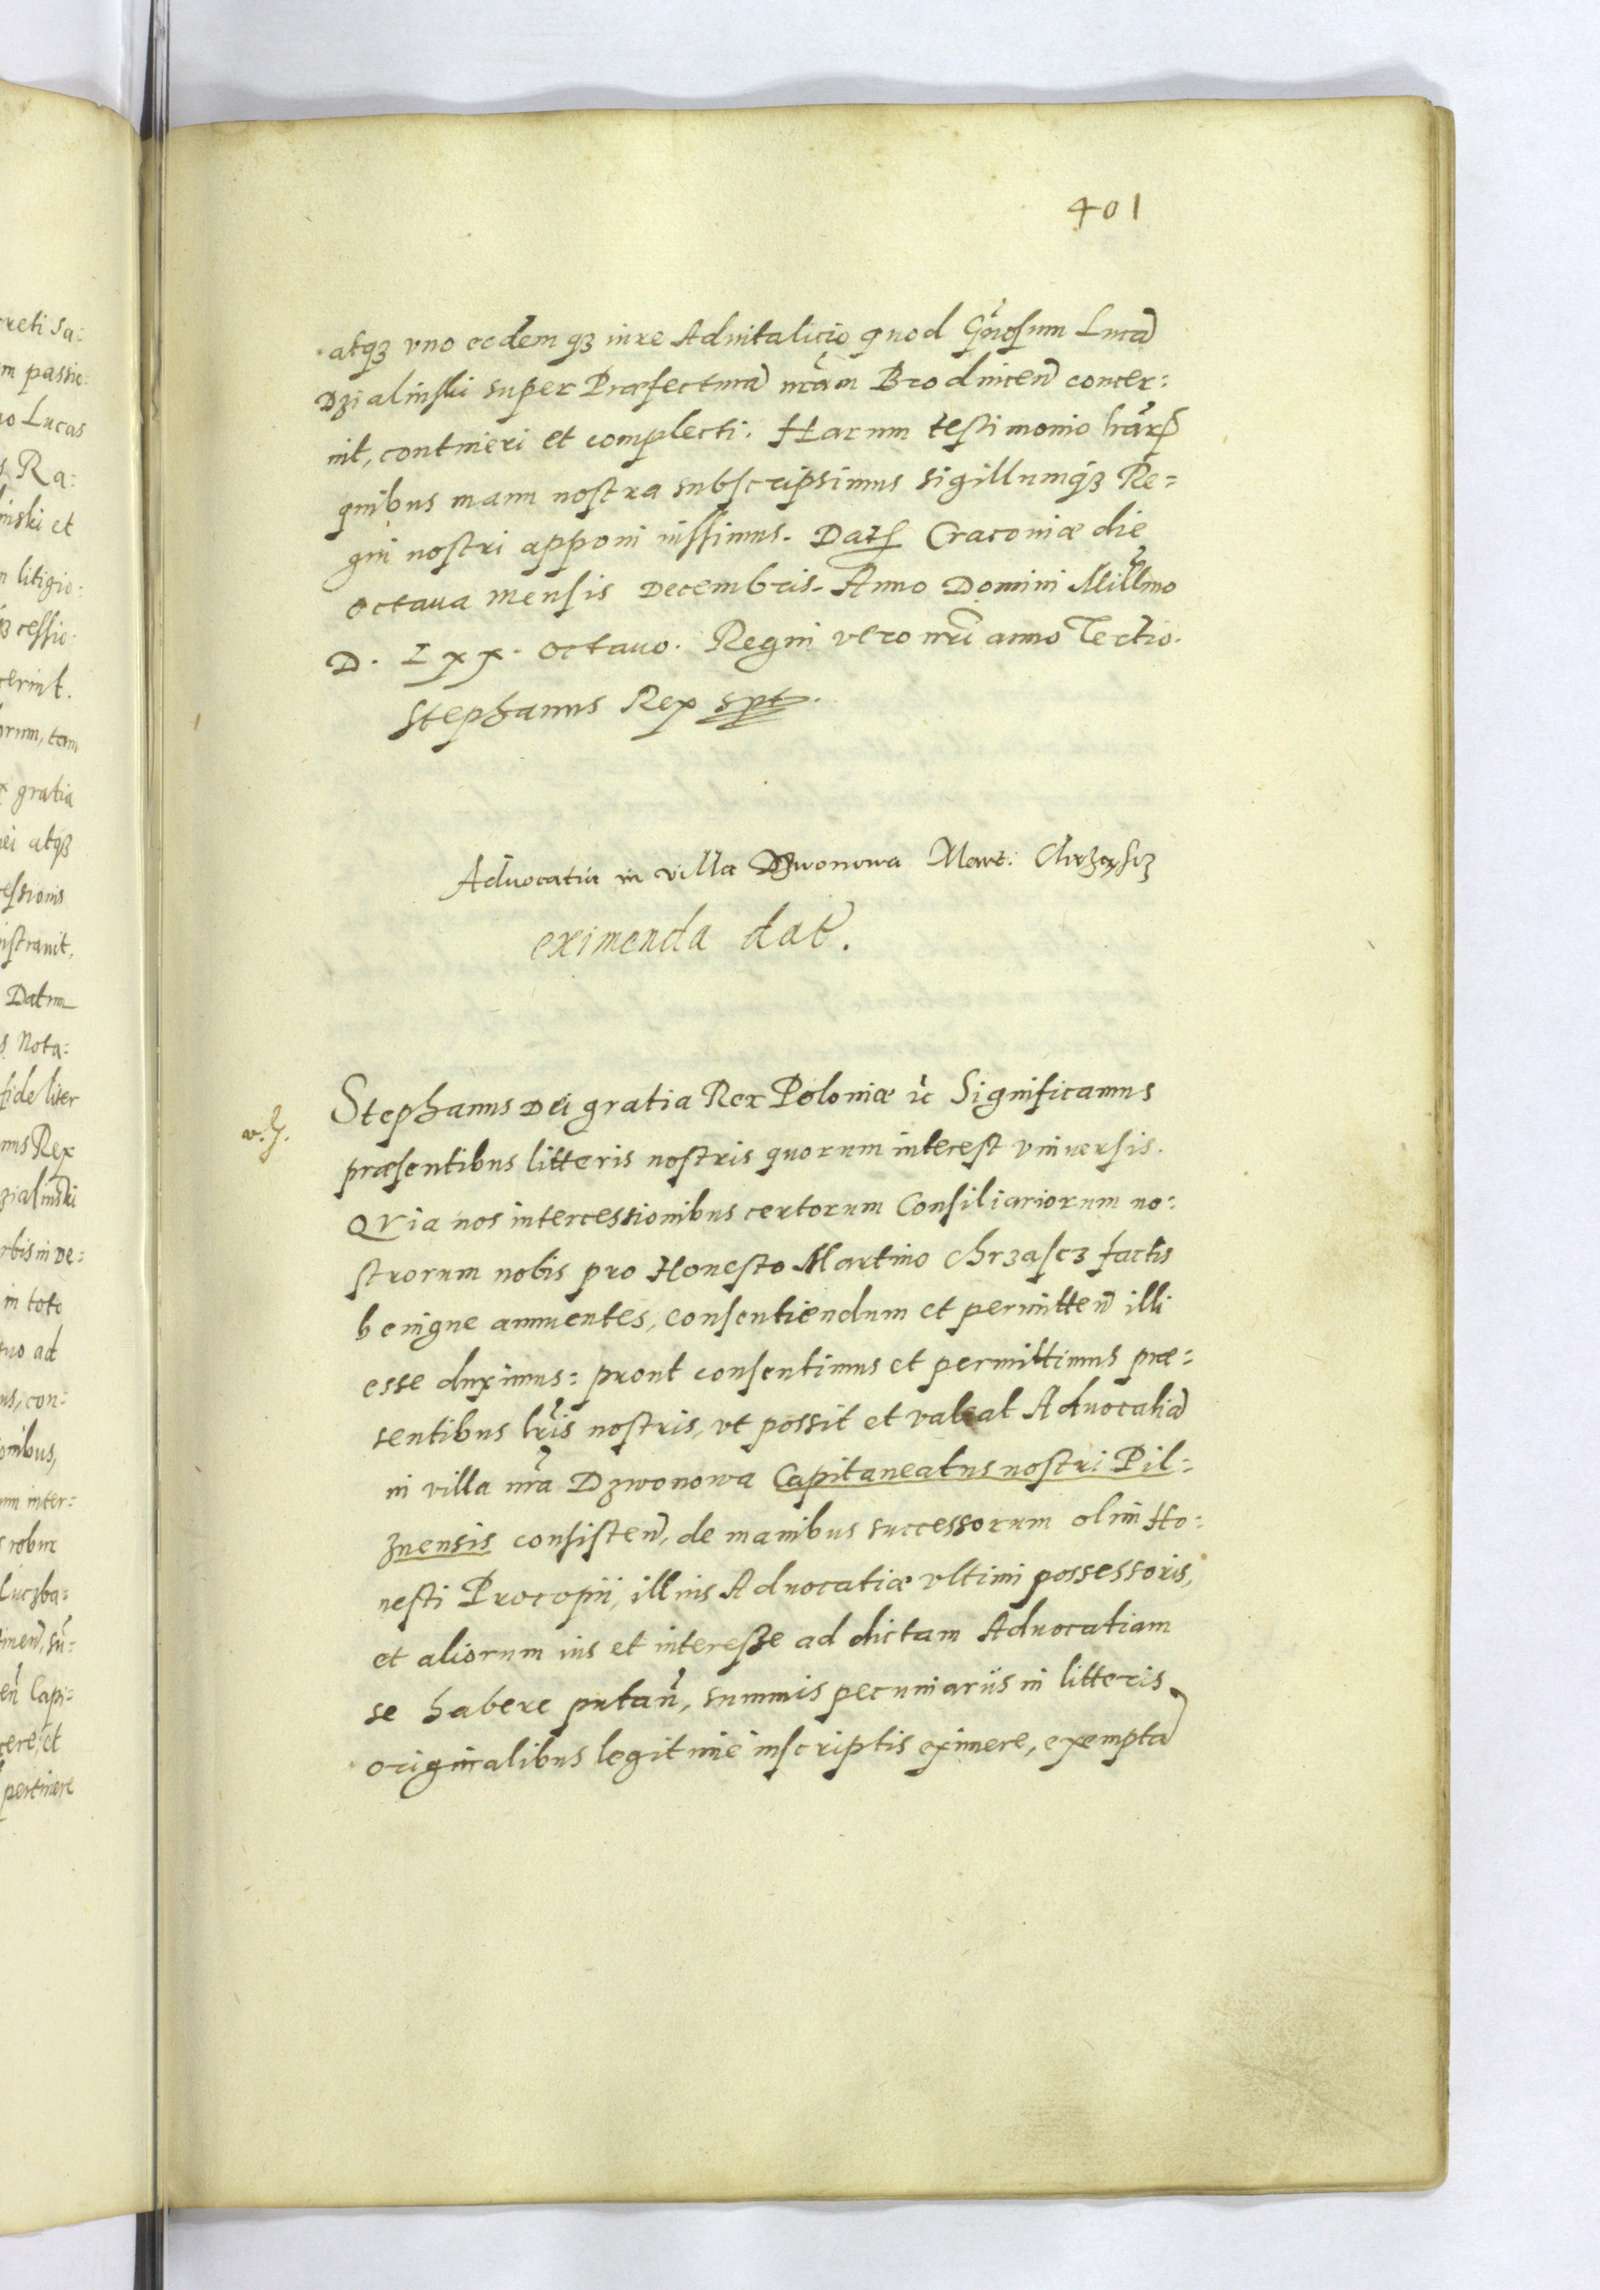 401
atqʒ vno eodemqʒ iure Aduitalicio quod Gñosum Lucã
Dzialinski super Præfecturã nrãm Brodnicen̄ concer:
nit, contineri et complecti. Harum testimonio lrãrꝭ
quibus manu nostra subscripsimus sigillumqʒ Re=
gni nostri apponi iussimus. Datꝭ Cracouiæ die
octaua mensis Decembris. Anno Domini Mill̃mo
D. Lxx. octauo. Regni vero nr̃i anno Tertio.
Stephanus Rex spt.
Aduocatia in villa Dzwonowa Mart: Chrzaszcz
eximenda dat̃.
v. J.
Stephanus Dei gratia Rex Poloniæ ꝛc Significamus
præsentibus litteris nostris quorum interest vniuersis.
QVia nos intercessionibus certorum Consiliariorum no:
strorum nobis pro Honesto Martino Chrzascz factis
benigne annuentes, consentiendum et permitten̄ illi
esse duximus: prout consentimus et permittimus præ=
sentibus lr̃is nostris, vt possit et valeat Aduocatiã
in villa nr̃a Dzwonowa Capitaneatus nostri Pil=
znensis consisten̄, de manibus successorum olim Ho:
nesti Procopii, illius Aduocatiæ vltimi possessoris,
et aliorum ius et interesse ad dictam Aduocatiam
se habere putan̄, summis pecuniariis in litteris
originalibus legitime inscriptis eximere, exemptã
reti Sa:
m passio:
no Lucas
s Ra:
inski et
n litigio:
ʒ cessio:
cerint.
orum, tam
x gratia
ei atqʒ
essionis
istrauit,
Datum
s Nota:
fideliter
nus Rex
zialinski
rbis in De:
in toto
uo ad
us, con:
onibus,
um inter:
robur
Luczba:
inen̄, su:
en̄ Capi:
cere, et
pertinere